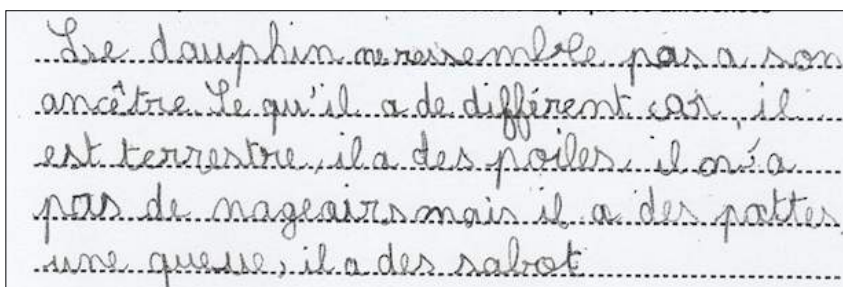 Le dauphin ne ressemble pas a son
ancêtre. Se qu'il a de différent car il
est terrestre, il a des poiles, il n'a
pas de nageairs mais il a des pattes,
une queue, il a des sabot